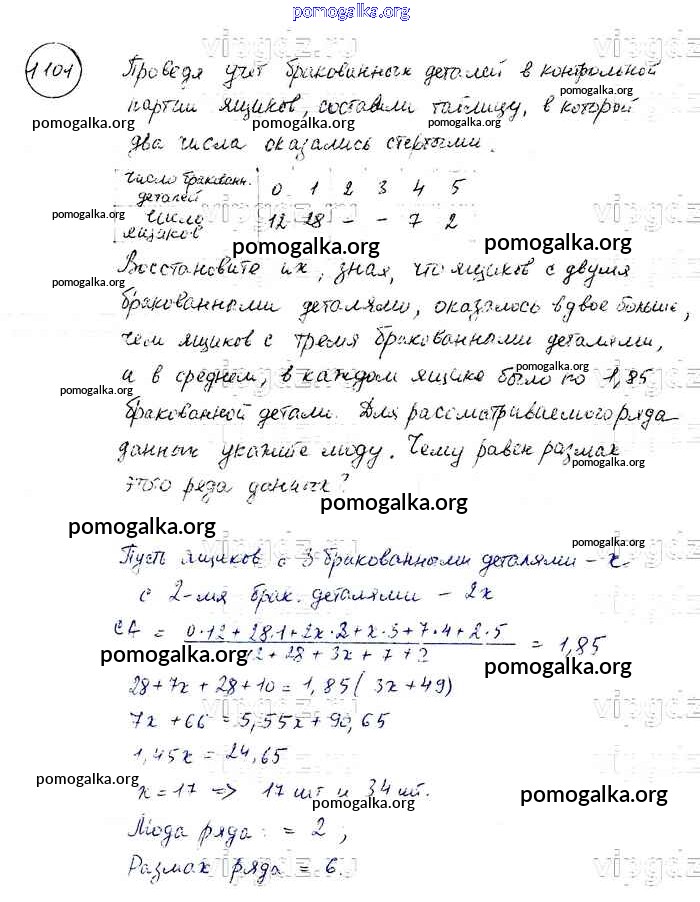 pomogalka.org
1101
Проведя учёт бракованных деталей в контрольной
партии ящиков, составили таблицу, в которой
pomogalka.org pomogalka.org pomogalka.org
два числа оказались стертыми.
число бракованн. деталей 0 1 2 3 4 5
число ящиков 12 28 - - 7 2
pomogalka.org pomogalka.org
pomogalka.org pomogalka.org
Восстановите их, зная, что ящиков с двумя
pomogalka.org
бракованными деталями, оказалось вдвое больше,
чем ящиков с тремя бракованными деталями,
pomogalka.org
и в среднем, в каждом ящике было по 1,85
pomogalka.org
бракованной детали. Для рассматриваемого ряда
данных укажите моду. Чему равен размах
pomogalka.org
этого ряда данных?
pomogalka.org
pomogalka.org
pomogalka.org
Пусть ящиков с 3 бракованными деталями - x
с 2-мя брак. деталями - 2x
СА = 0·12 + 28·1 + 2x·2 + x·3 + 7·4 + 2·5 / 12 + 28 + 3x + 7 + 2 = 1,85
pomogalka.org pomogalka.org
28 + 7x + 28 + 10 = 1,85 ( 3x + 49)
7x + 66 = 5,55x + 90,65
1,45x = 24,65
pomogalka.org
x = 17 => 17 шт и 34 шт.
pomogalka.org pomogalka.org
Мода ряда : = 2 ;
Размах ряда = 6.
vipgdz.ru